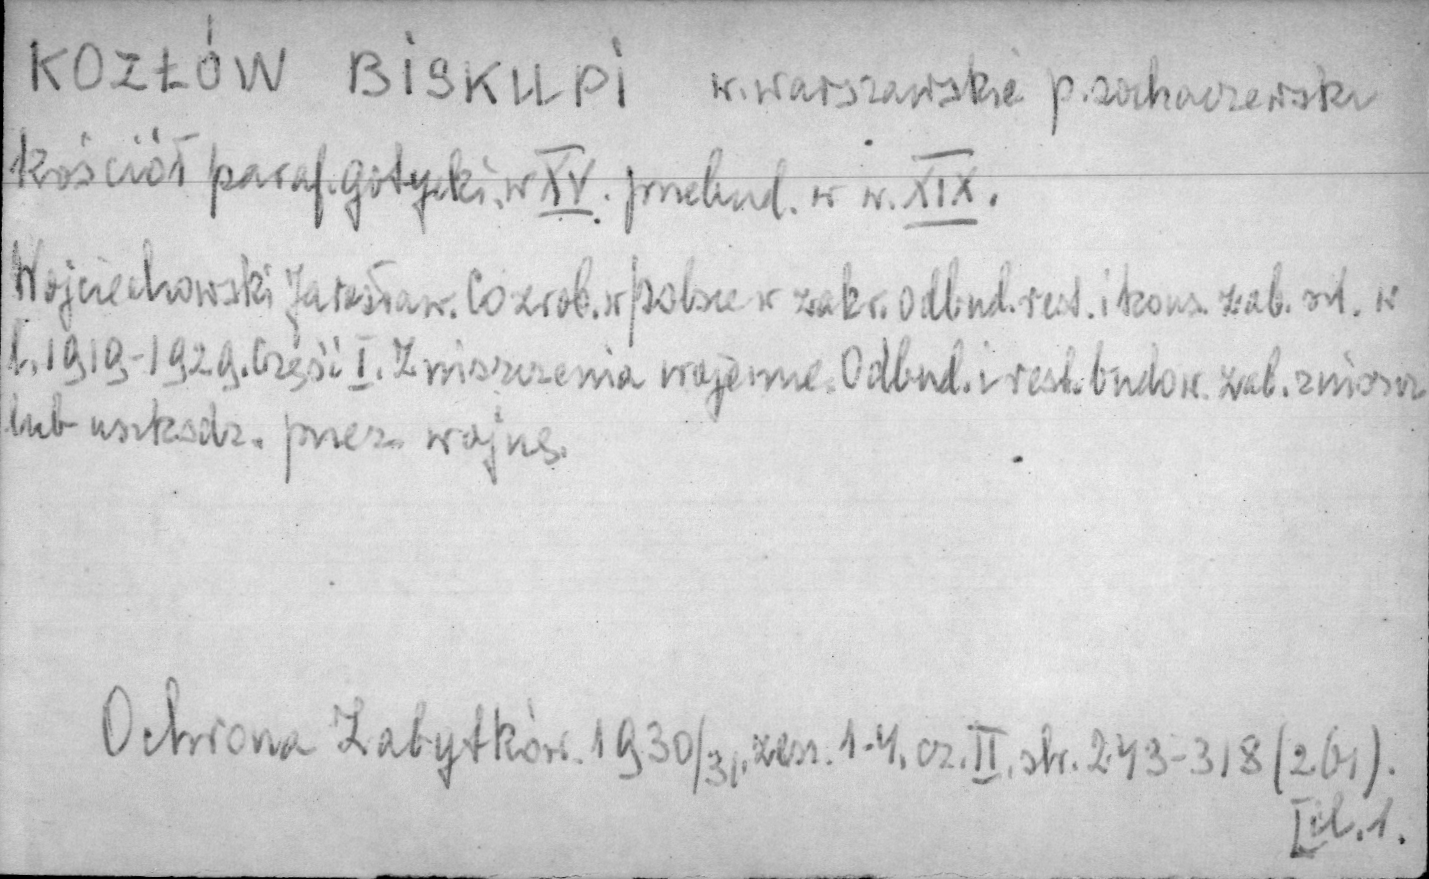 KOZŁÓW BISKUPI w. warszawskie p. sochaczewski
kościół paraf. gotycki. w XV. przebud. w w. XIX.
Wojciechowski Jarosław. Co zrob. w Polsce w zakr. odbud. rest. i kons. zab. szt. w
l. 1919-1929. Część I. Zniszczenia wojenne. Odbud. i rest. budow. zab. zniszcz
lub uszkodz. przez wojnę.
Ochrona Zabytków. 1930/31. zesz. 1-4. cz. II. str. 243-318 (261).
Il. 1.